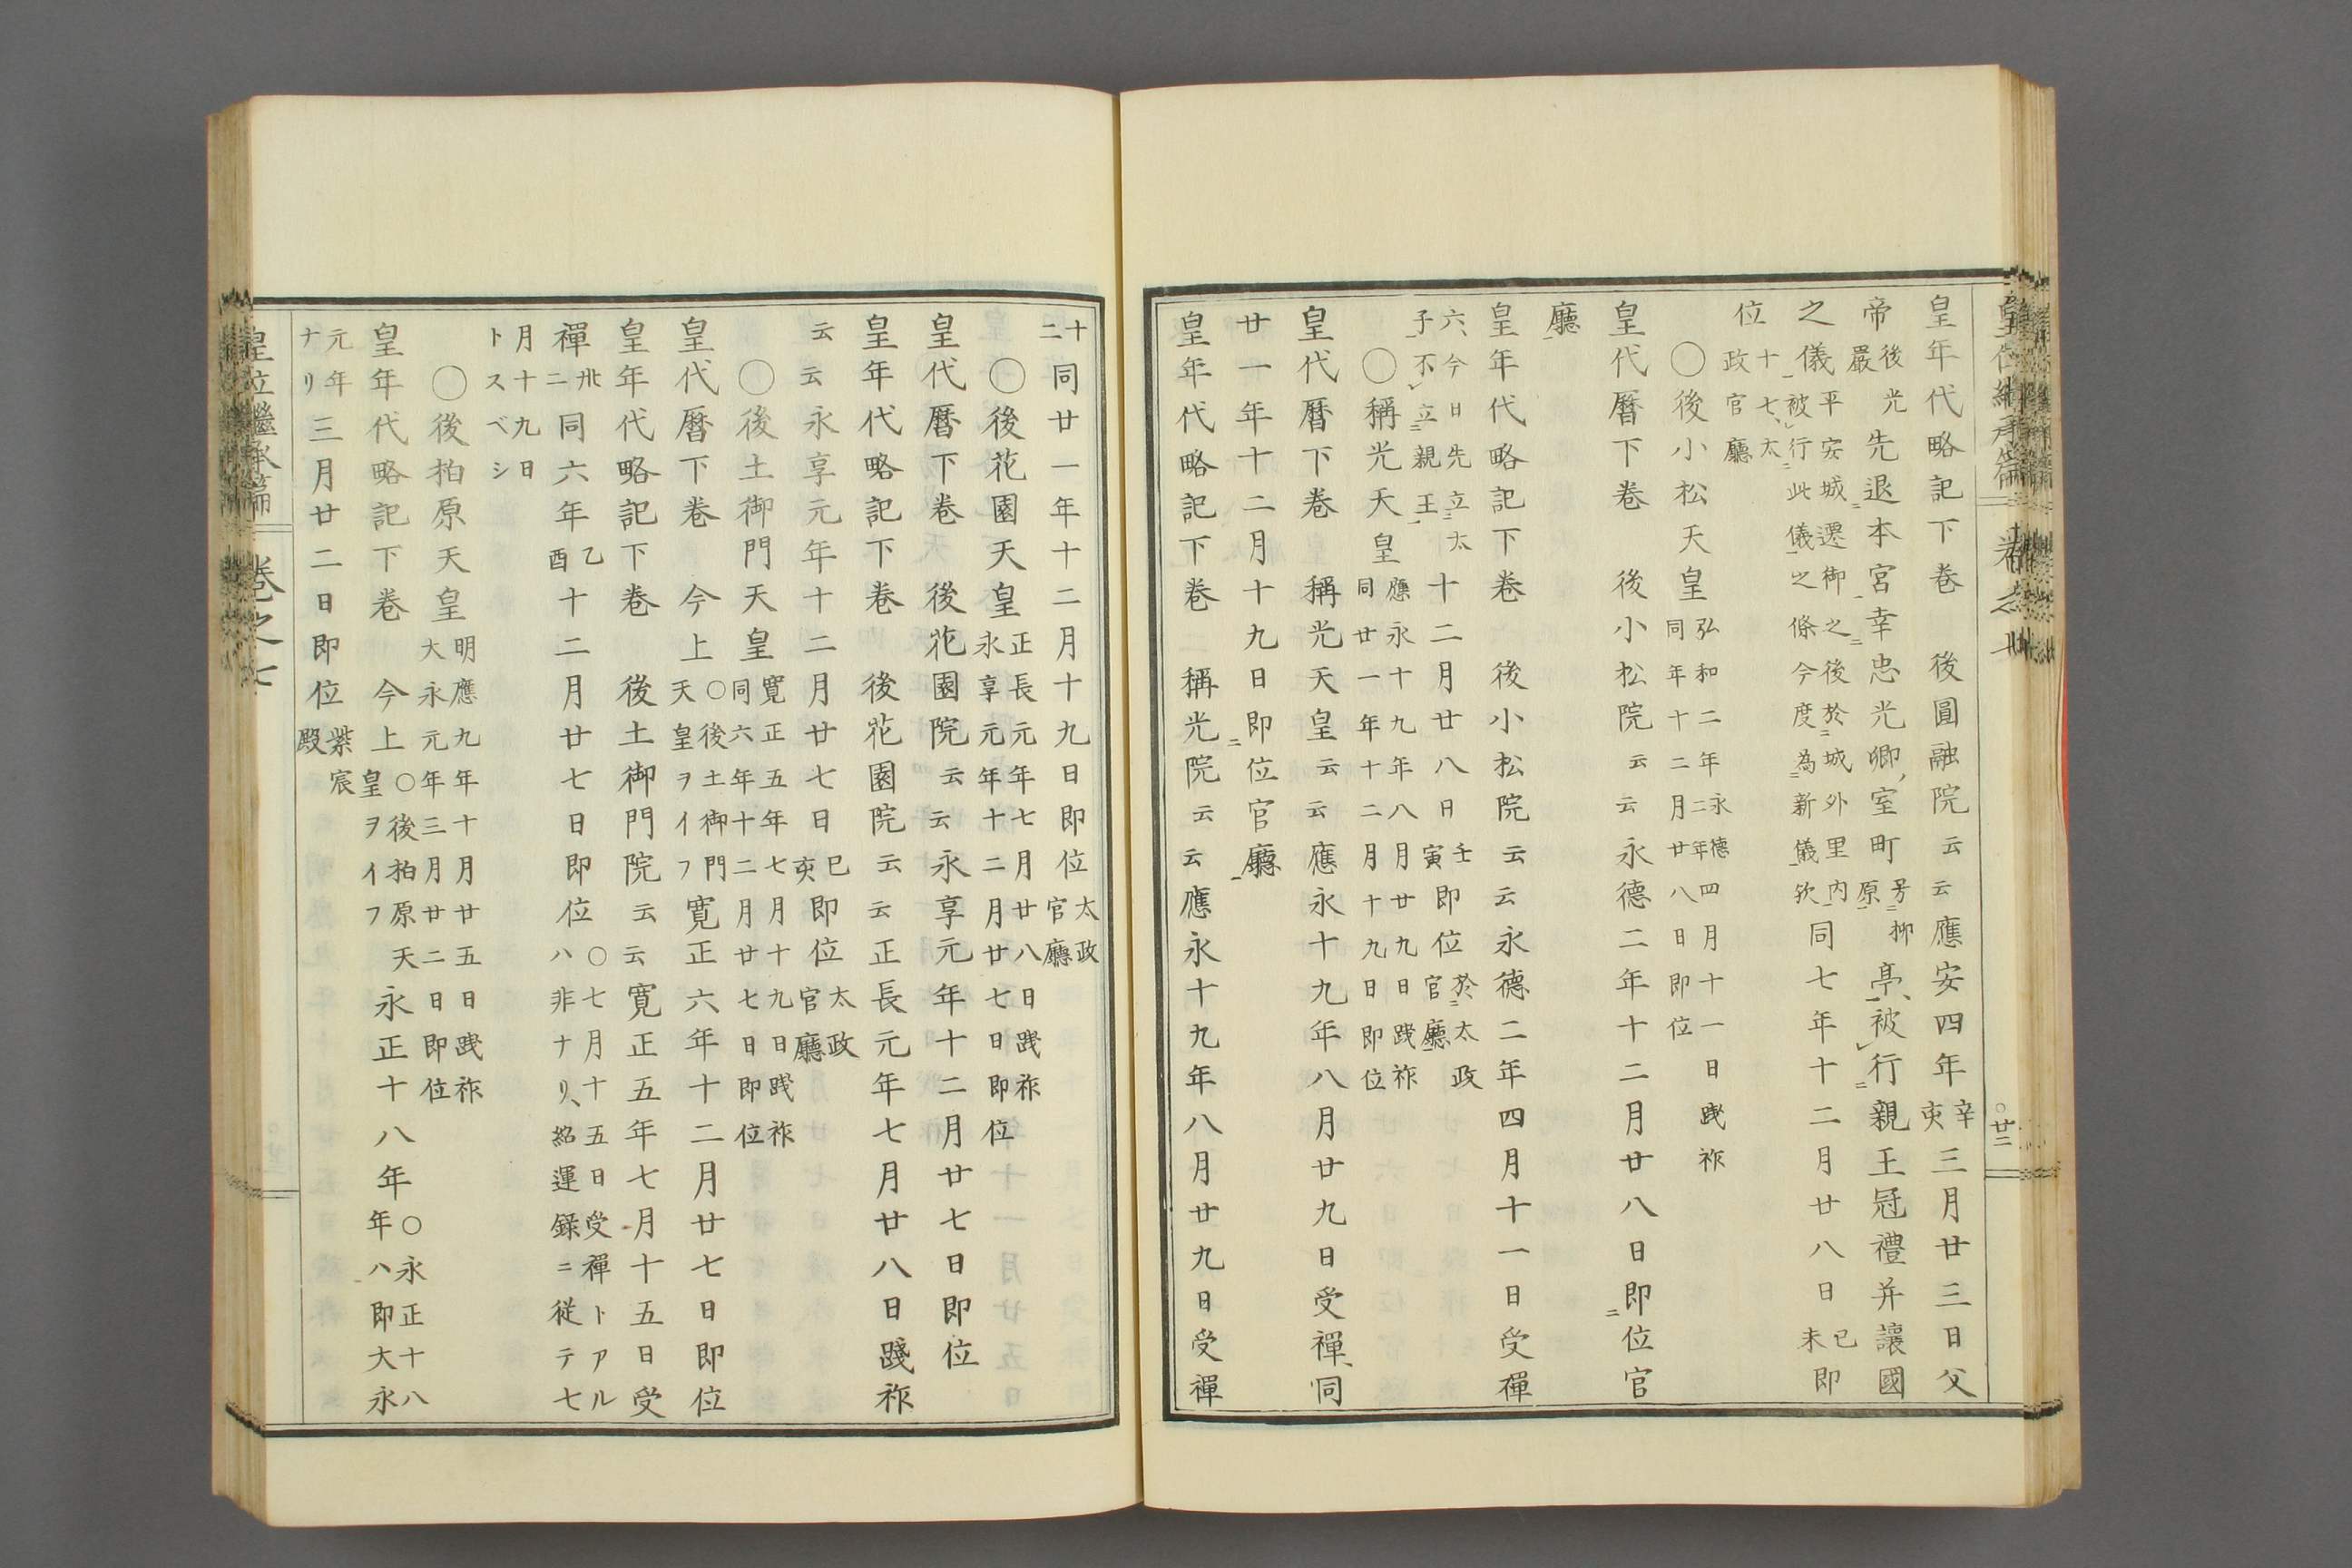 皇年代略記下巻　後圓融院云云應安四年辛亥三月廿三日父
帝後光嚴先退本宮幸忠光卿、室町芳柳原亭、被行親王冠禮并讓國
之儀平安城遷御之後於城外里内被行此儀之條今度為新儀欤同七年十二月廿八日己未即
位十七、太政官廳
〇後小松天皇弘和二年永德二年四月十一日践祚同年十二月廿八日即位
皇代暦下巻　後小松院云云永德二年十二月廿八日即位官
廳
皇年代略記下巻　後小松院云云永德二年四月十一日受禪
六、今日先立太子不立親王十二月廿八日壬寅即位於太政官廳
〇稱光天皇應永十九年八月廿九日践祚同廿一年十二月十九日即位
皇代暦下巻　稱光天皇云云應永十九年八月廿九日受禪、同
廿一年十二月十九日即位官廳
皇年代略記下巻　稱光院云云應永十九年八月廿九日受禪
十二同廿一年十二月十九日即位太政官廳
〇後花園天皇正長元年七月廿八日践祚永享元年十二月廿七日即位
皇代暦下巻　後花園院云云永享元年十二月廿七日即位
皇年代略記下巻　後花園院云云正長元年七月廿八日踐祚
云云永享元年十二月廿七日己亥即位太政官廳
〇後土御門天皇寛正五年七月十九日践祚同六年十二月廿七日即位
皇代暦下巻　今上〇後土御門天皇ヲイフ寛正六年十二月廿七日即位
皇年代略記下巻　後土御門院云云寛正五年七月十五日受
禪卅二同六年乙酉十二月廿七日即位〇七月十五日受禪トアルハ非ナリ、紹運録ニ従テ七
月十九日トスベシ
〇後柏原天皇明應九年十月廿五日践祚大永元年三月廿二日即位
皇年代略記下巻　今上〇後柏原天皇ヲイフ永正十八年〇永正十八年ハ即大永
元年ナリ三月廿二日即位紫宸殿
皇位繼承篇　巻之七